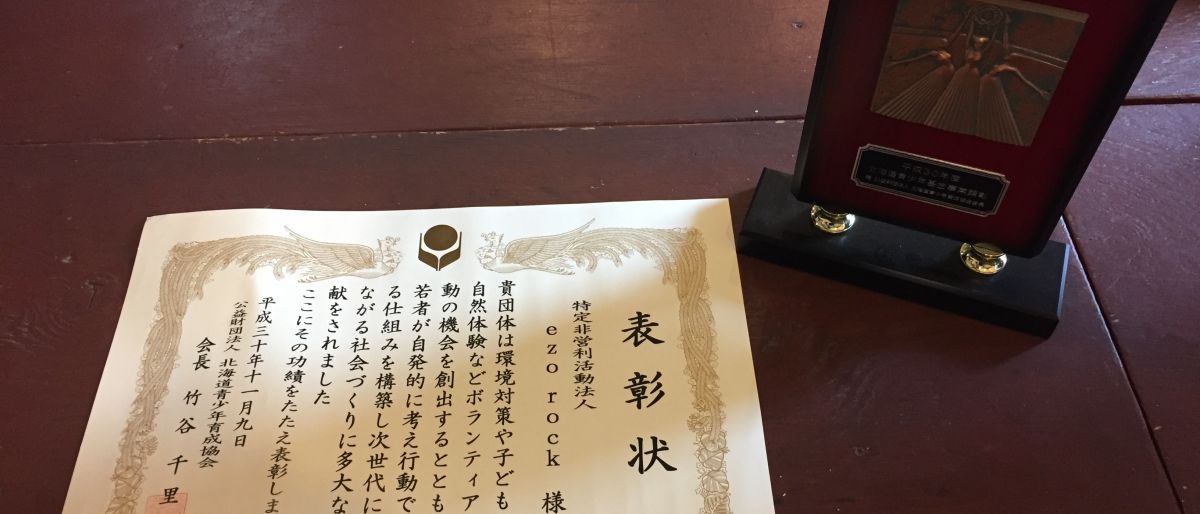 表彰状
特定非営利活動法人
ezorock 様
貴団体は環境対策や子ども
自然体験などボランティア
動の機会を創出するととも
若者が自発的に考え行動で
る仕組みを構築し次世代に
ながる社会づくりに多大な
献をされました
ここにその功績をたたえ表彰しま
平成三十年十一月九日
公益財団法人 北海道青少年育成協会
会長 竹谷千里